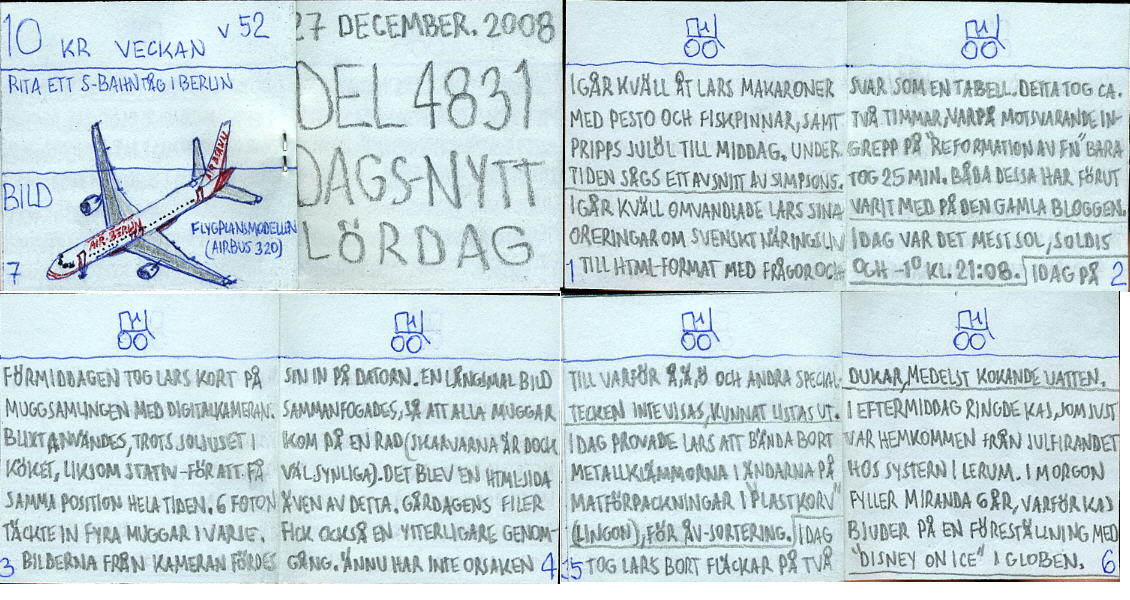 10 KR VECKAN V 52
RITA ETT S-BAHNTÅG I BERLIN
BILD
AIR BERLIN
AIR BERLIN
FLYGPLANSMODELLEN
(AIRBUS 320)
7
27 DECEMBER. 2008
DEL 4831
DAGS-NYTT
LÖRDAG
IGÅR KVÄLL ÅT LARS MAKARONER
MED PESTO OCH FISKPINNAR, SAMT
PRIPPS JULÖL TILL MIDDAG. UNDER
TIDEN SÅGS ETT AVSNITT AV SIMPSONS.
IGÅR KVÄLL OMVANDLADE LARS SINA
ORERINGAR OM SVENSKT NÄRINGSLIV
1 TILL HTML-FORMAT MED FRÅGOR OCH
SVAR SOM EN TABELL. DETTA TOG CA.
TVÅ TIMMAR, VARPÅ MOTSVARANDE IN-
GREPP PÅ "REFORMATION AV FN" BARA
TOG 25 MIN. BÅDA DESSA HAR FÖRUT
VARIT MED PÅ DEN GAMLA BLOGGEN.
IDAG VAR DET MEST SOL, SOLDIS
OCH -1° KL. 21:08. IDAG PÅ 2
FÖRMIDDAGEN TOG LARS KORT PÅ
MUGGSAMLINGEN MED DIGITALKAMERAN.
BLIXT ANVÄNDES, TROTS SOLJUSET I
KÖKET, LIKSOM STATIV -FÖR ATT FÅ
SAMMA POSITION HELA TIDEN. 6 FOTON
TÄCKTE IN FYRA MUGGAR I VARJE.
3 BILDERNA FRÅN KAMERAN FÖRDES
SIN IN PÅ DATORN. EN LÅNGSMAL BILD
SAMMANFOGADES, SÅ ATT ALLA MUGGAR
KOM PÅ EN RAD (SKARVARNA ÄR DOCK
VÄL SYNLIGA). DET BLEV EN HTMLSIDA
ÄVEN AV DETTA. GÅRDAGENS FILER
FICK OCKSÅ EN YTTERLIGARE GENOM-
GÅNG. ÄNNU HAR INTE ORSAKEN 4
TILL VARFÖR Å,Ä,Ö OCH ANDRA SPECIAL-
TECKEN INTE VISAS, KUNNAT LISTAS UT.
IDAG PROVADE LARS ATT BÄNDA BORT
METALLKLÄMMORNA I ÄNDARNA PÅ
MATFÖRPACKNINGAR I "PLASTKORV"
(LINGON), FÖR ÅV-SORTERING. IDAG
5 TOG LARS BORT FLÄCKAR PÅ TVÅ
DUKAR, MEDELST KOKANDE VATTEN.
I EFTERMIDDAG RINGDE KAJ, SOM JUST
VAR HEMKOMMEN FRÅN JULFIRANDET
HOS SYSTERN I LERUM. I MORGON
FYLLER MIRANDA 6 ÅR, VARFÖR KAJ
BJUDER PÅ EN FÖRESTÄLLNING MED
"DISNEY ON ICE" I GLOBEN. 6